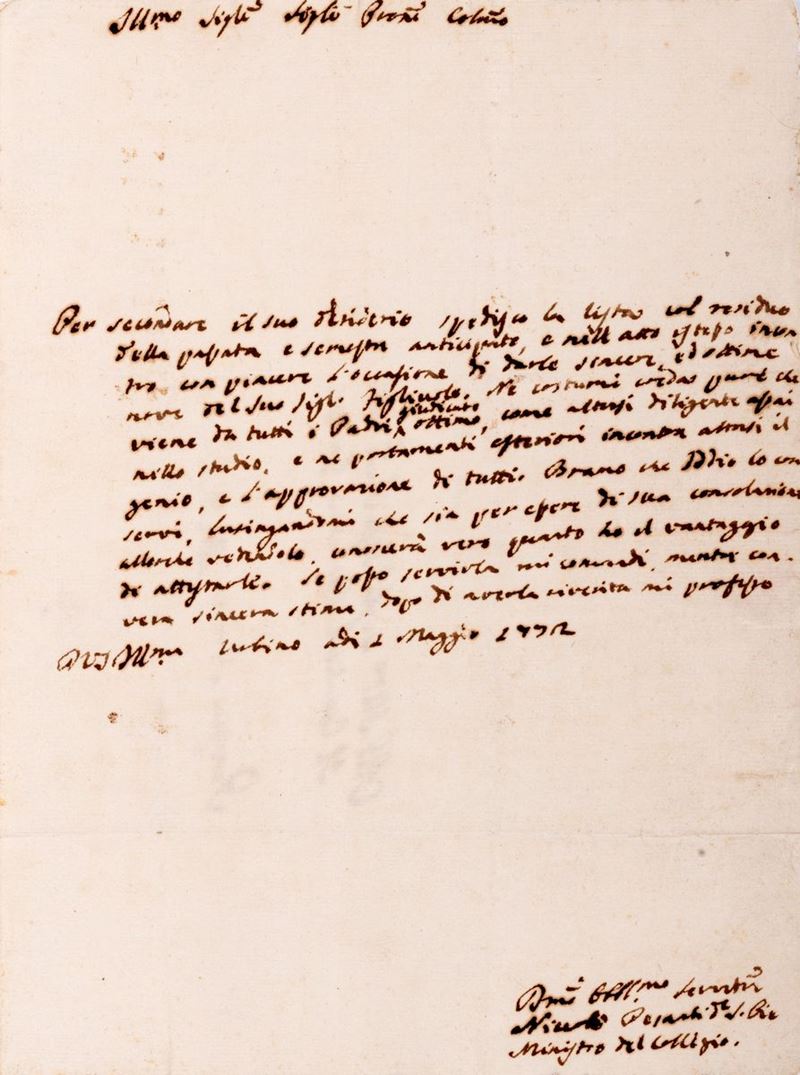 Ill.mo Sig.re Sig.re Pron.e Col.mo
Per secondare il suo desiderio spedisco la lista col residuo
della passata e semestre anticipato, e nell atto istesso incon
tro con piacere l'occasione di darle sincere, ed ottime
nove del suo Sig.r Figliuolo. Ne costumi credas pure che
viene da tutti i Padri giudicato ottimo, come altresi diligente assai
nello studio, e ne portamenti esteriori incontra altresi il
genio, e l'approvazione di tutti. Bramo che Iddio lo con
servi, lusingandomi che sia per essere di sua consolazione
allorche vedendolo, conoscerà vero quanto ho il vantaggio
di attestarle. Se posso servirla mi comandi, mentre con
vera sincera stima, dopo di averla riverita mi professo
D V S Ill.ma Urbino adi 1 Maggio 1772
D.mo Obbl.mo Servitor
Nicolò de S.
Ministro del Collegio.